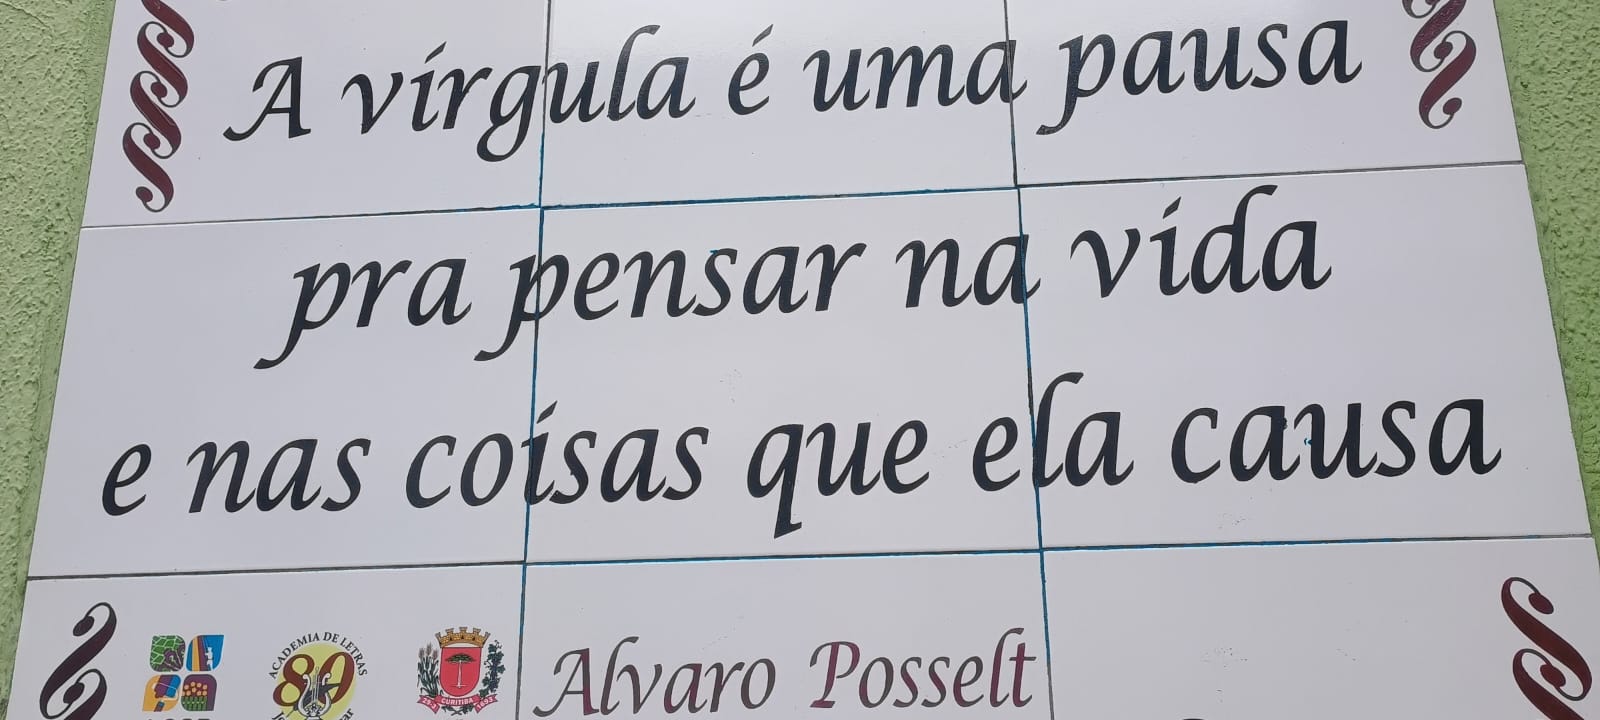 A vírgula é uma pausa
pra pensar na vida
e nas coisas que ela causa
Alvaro Posselt
ACADEMIA DE LETRAS
80
CURITIBA
1693